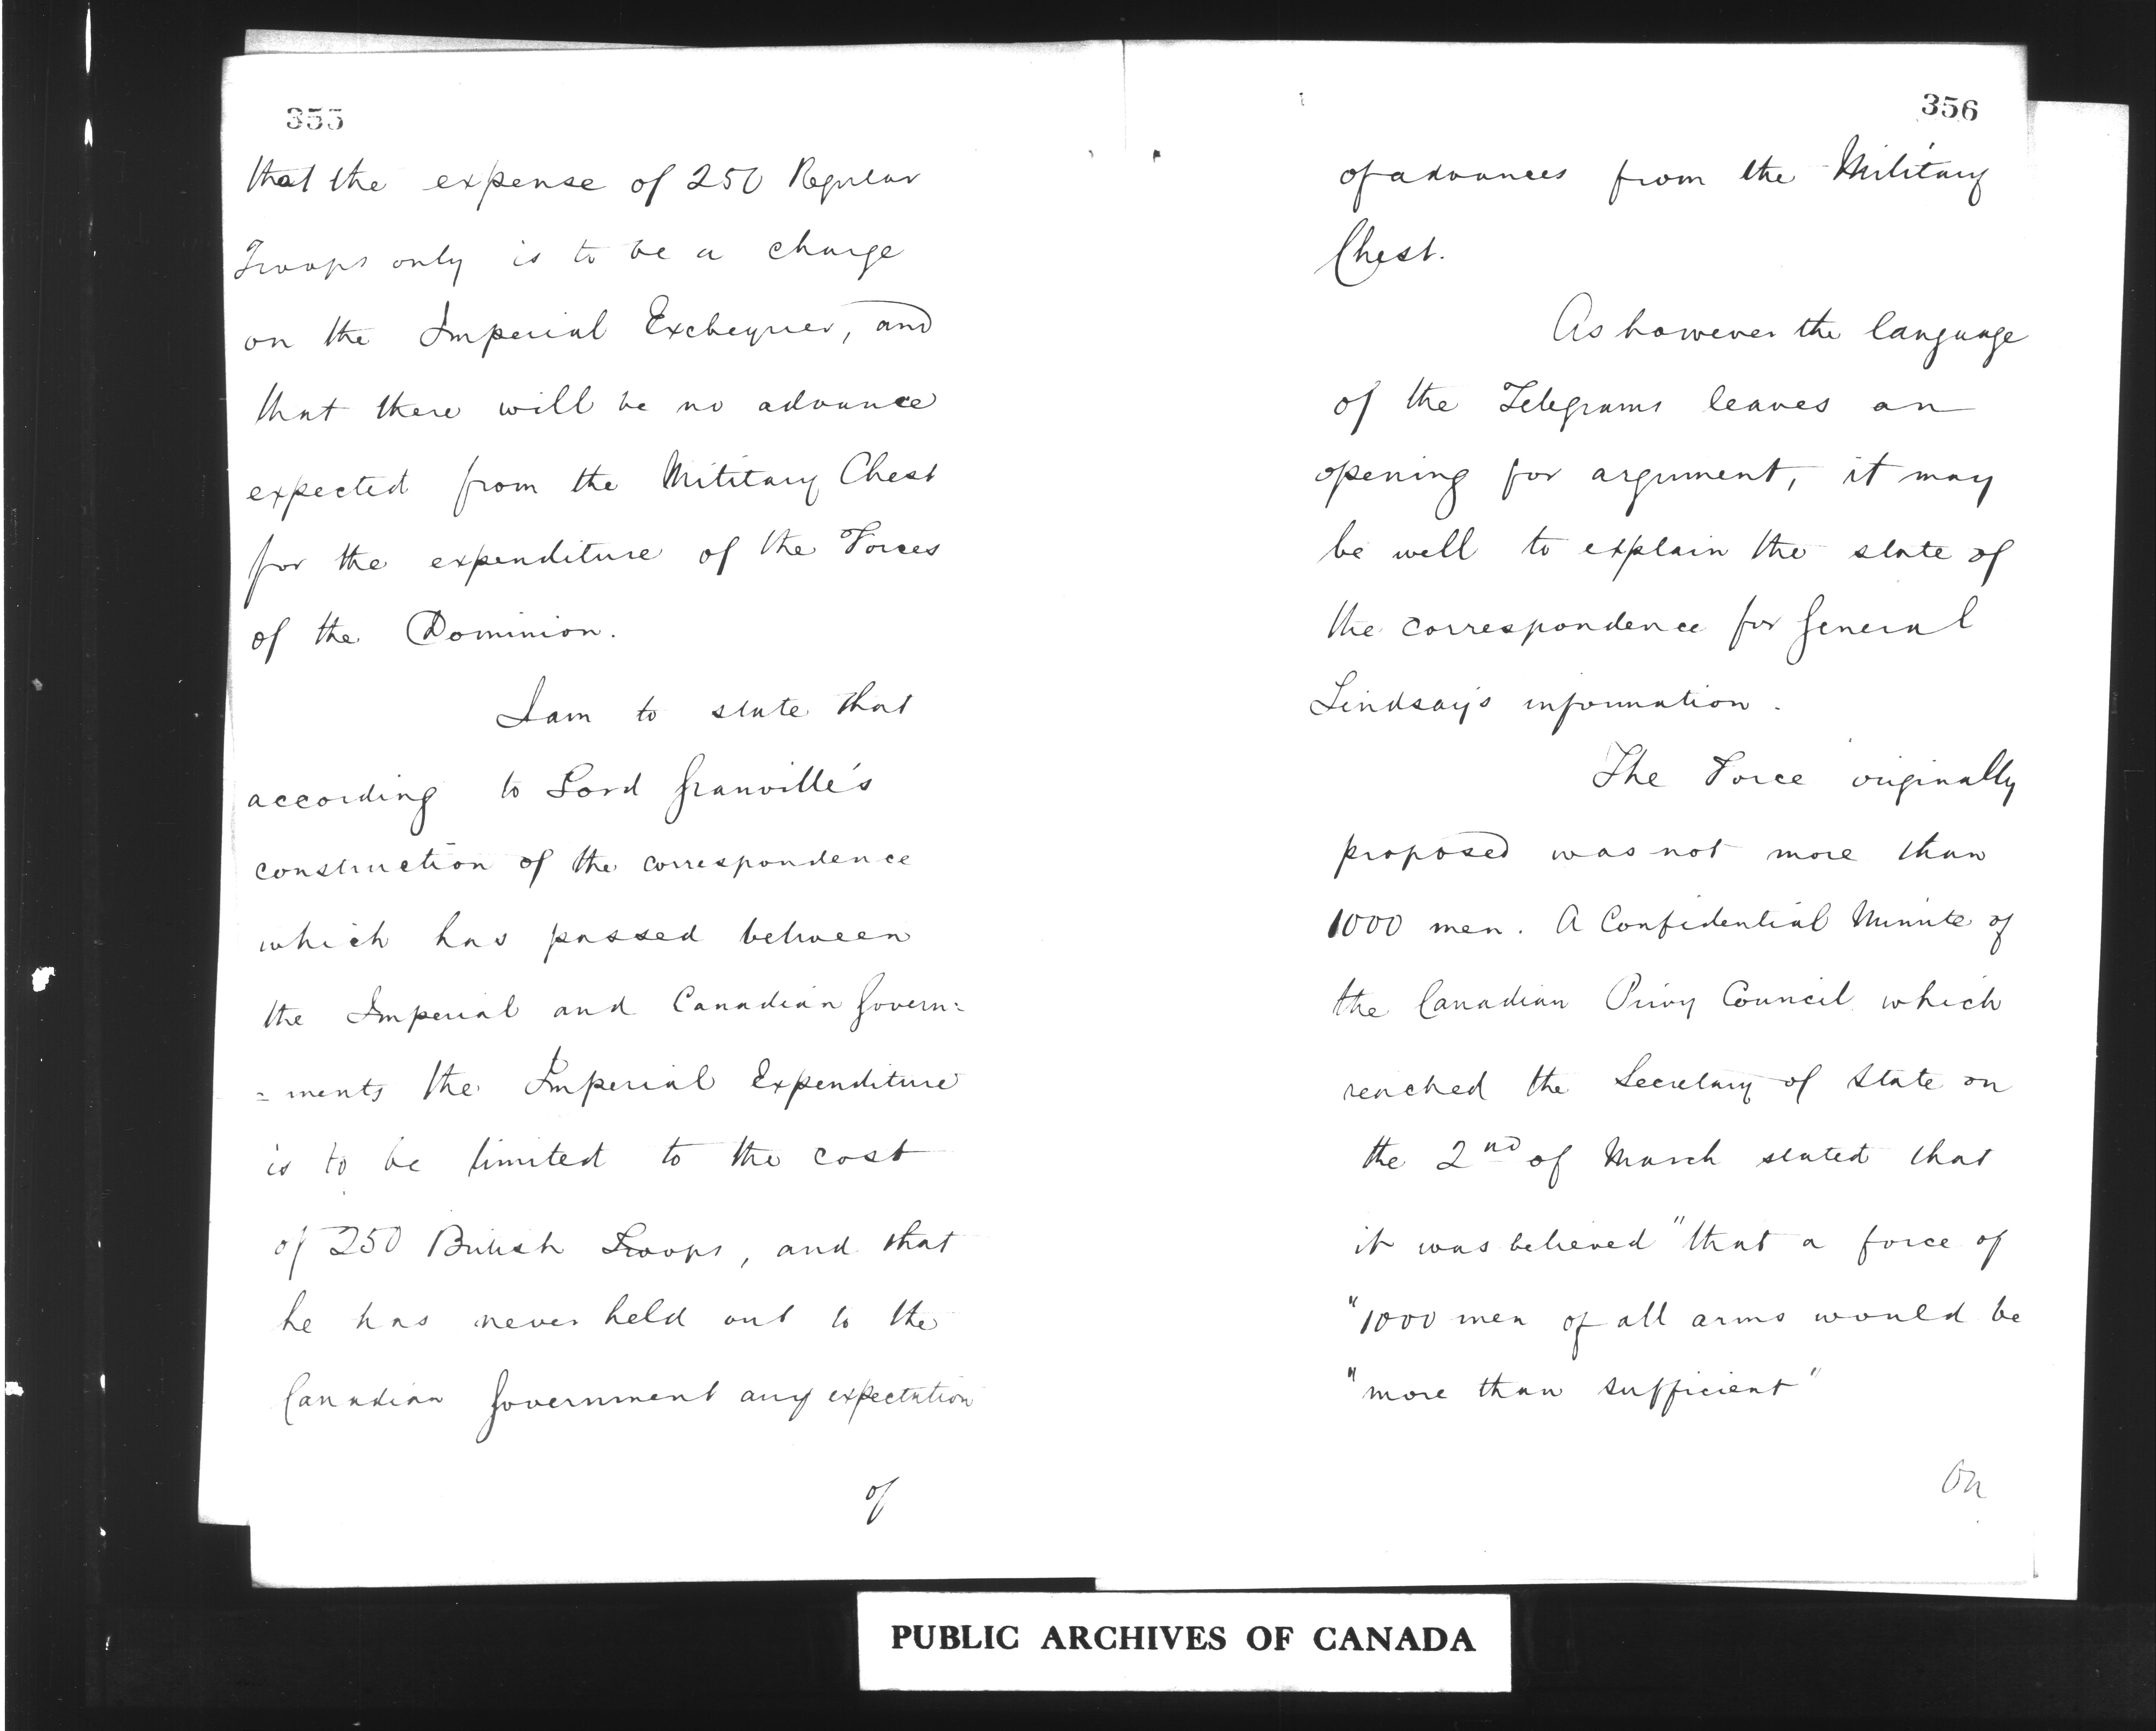 355
that the expense of 250 Regular
Troops only is to be a charge
on the Imperial Exchequer, and
that there will be no advance
expected from the Military Chest
for the expenditure of the Forces
of the Dominion.
I am to state that
according to Lord Granville's
construction of the correspondence
which has passed between
the Imperial and Canadian Govern:
= ments the Imperial Expenditure
is to be limited to the cost
of 250 British Troops, and that
he has never held out to the
Canadian Government any expectation
of
356
of advances from the Military
Chest.
As however the language
of the Telegrams leaves an
opening for argument, it may
be well to explain the state of
the correspondence for General
Lindsay's information.
The Force originally
proposed was not more than
1000 men. A Confidential Minute of
the Canadian Privy Council which
reached the Secretary of State on
the 2nd of March stated that
it was believed "that a force of
"1000 men of all arms would be
"more than sufficient"
On
PUBLIC ARCHIVES OF CANADA